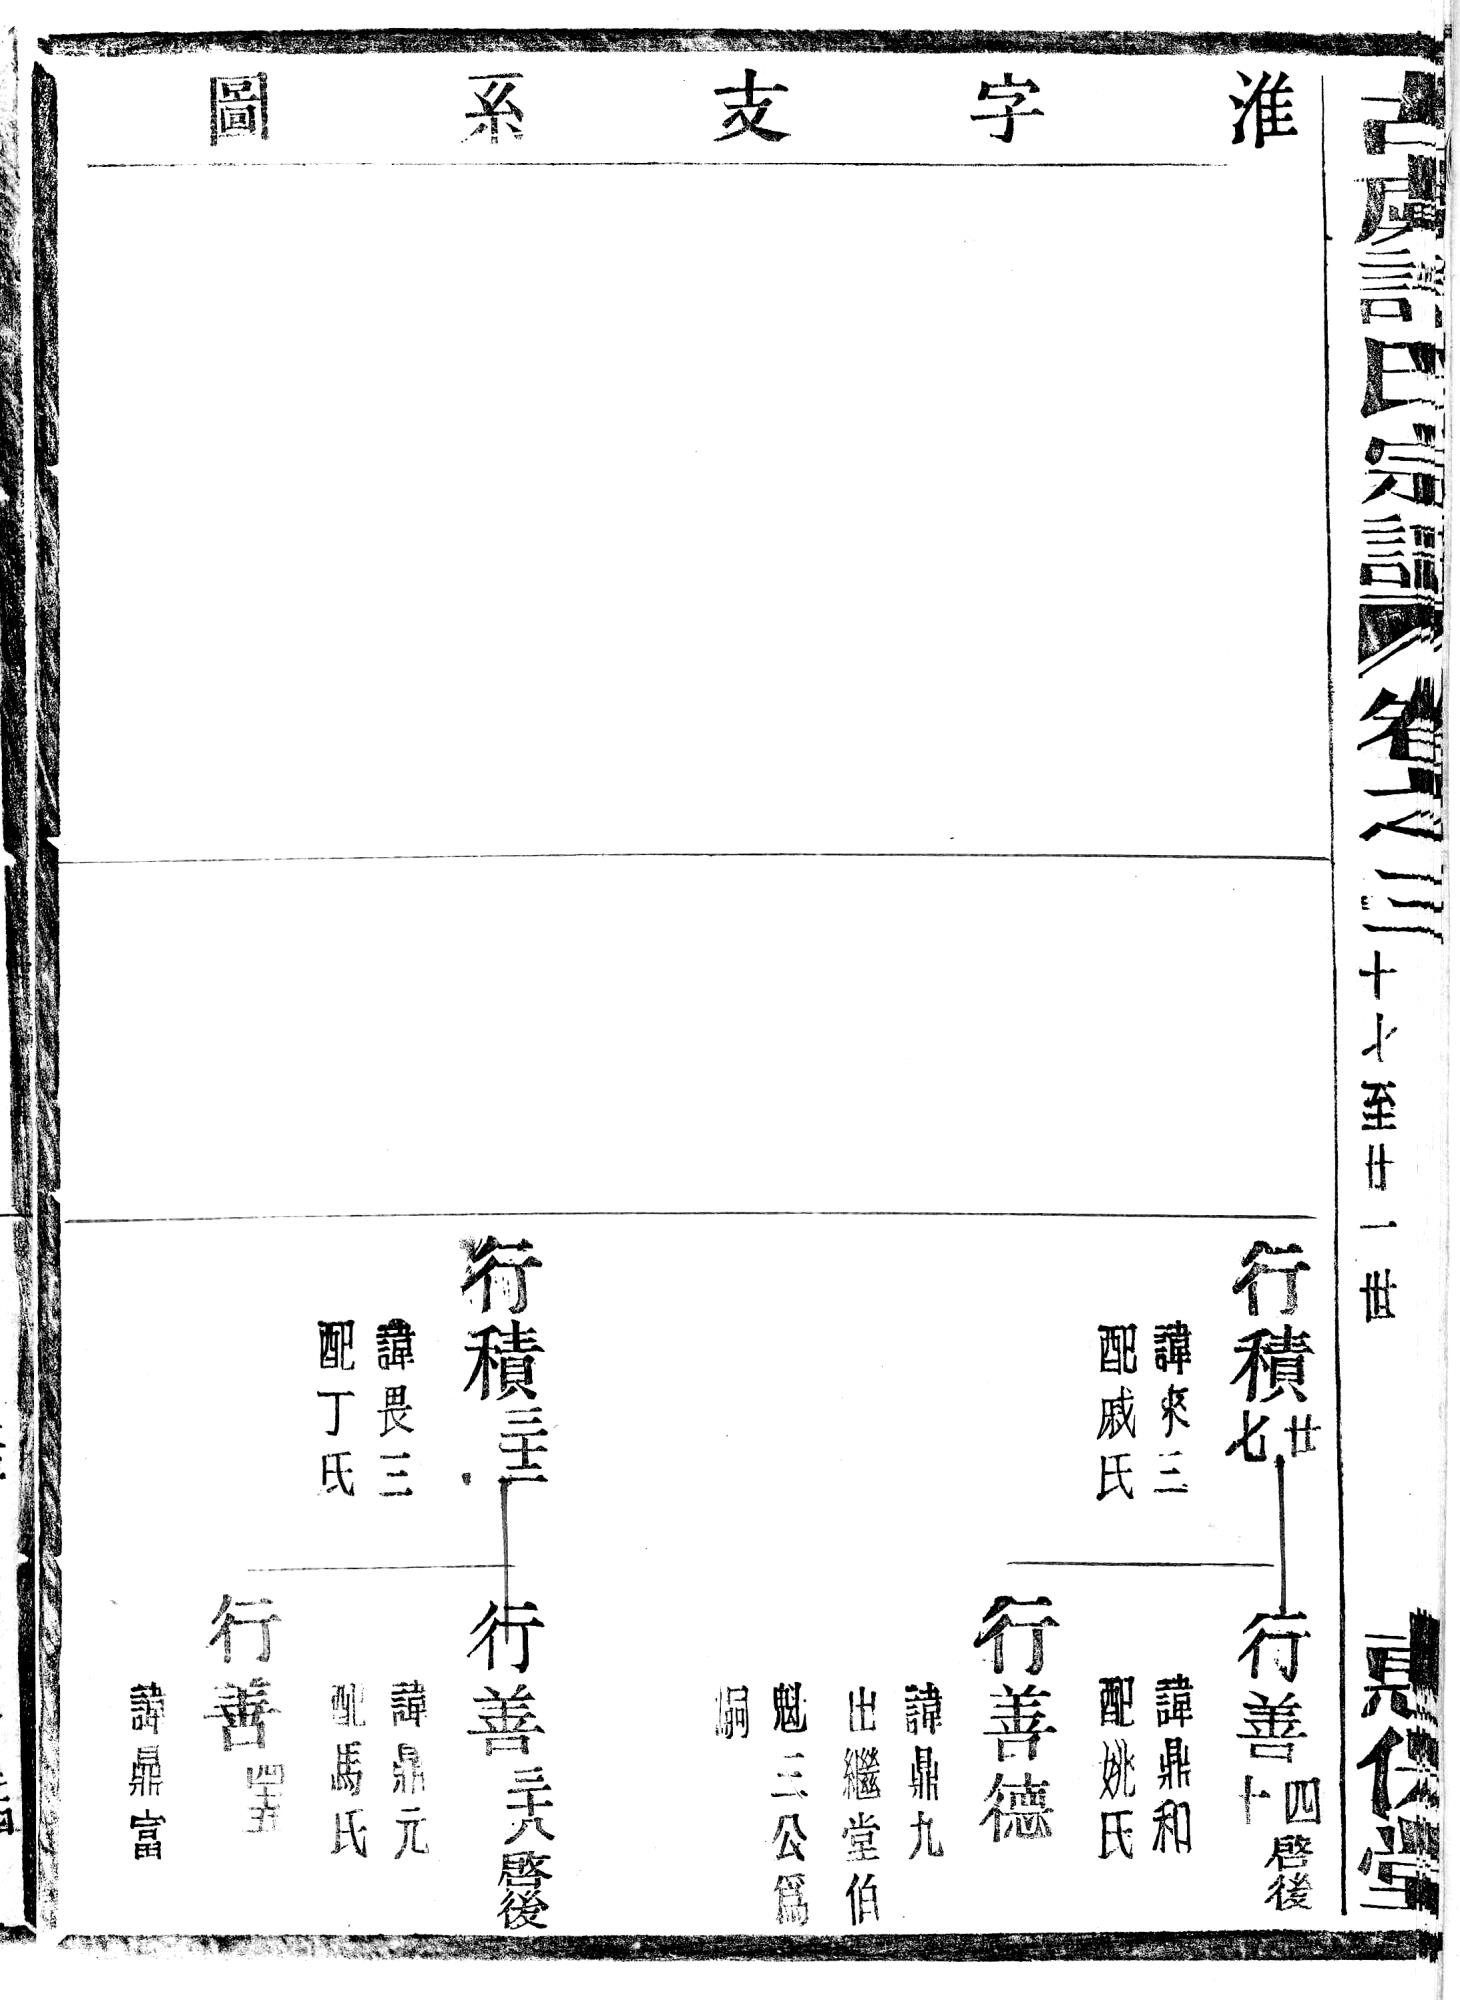 淮字支系圖
卷之三
十七至廿一世
堂
行積廿七
諱來三
配戚氏
行善四十
啓後
諱鼎和
配姚氏
行善德
諱鼎九
出繼堂伯
魁三公爲
嗣
行積三十二
諱畏三
配丁氏
行善三十八
啓後
諱鼎元
配馬氏
行善四十五
諱鼎富